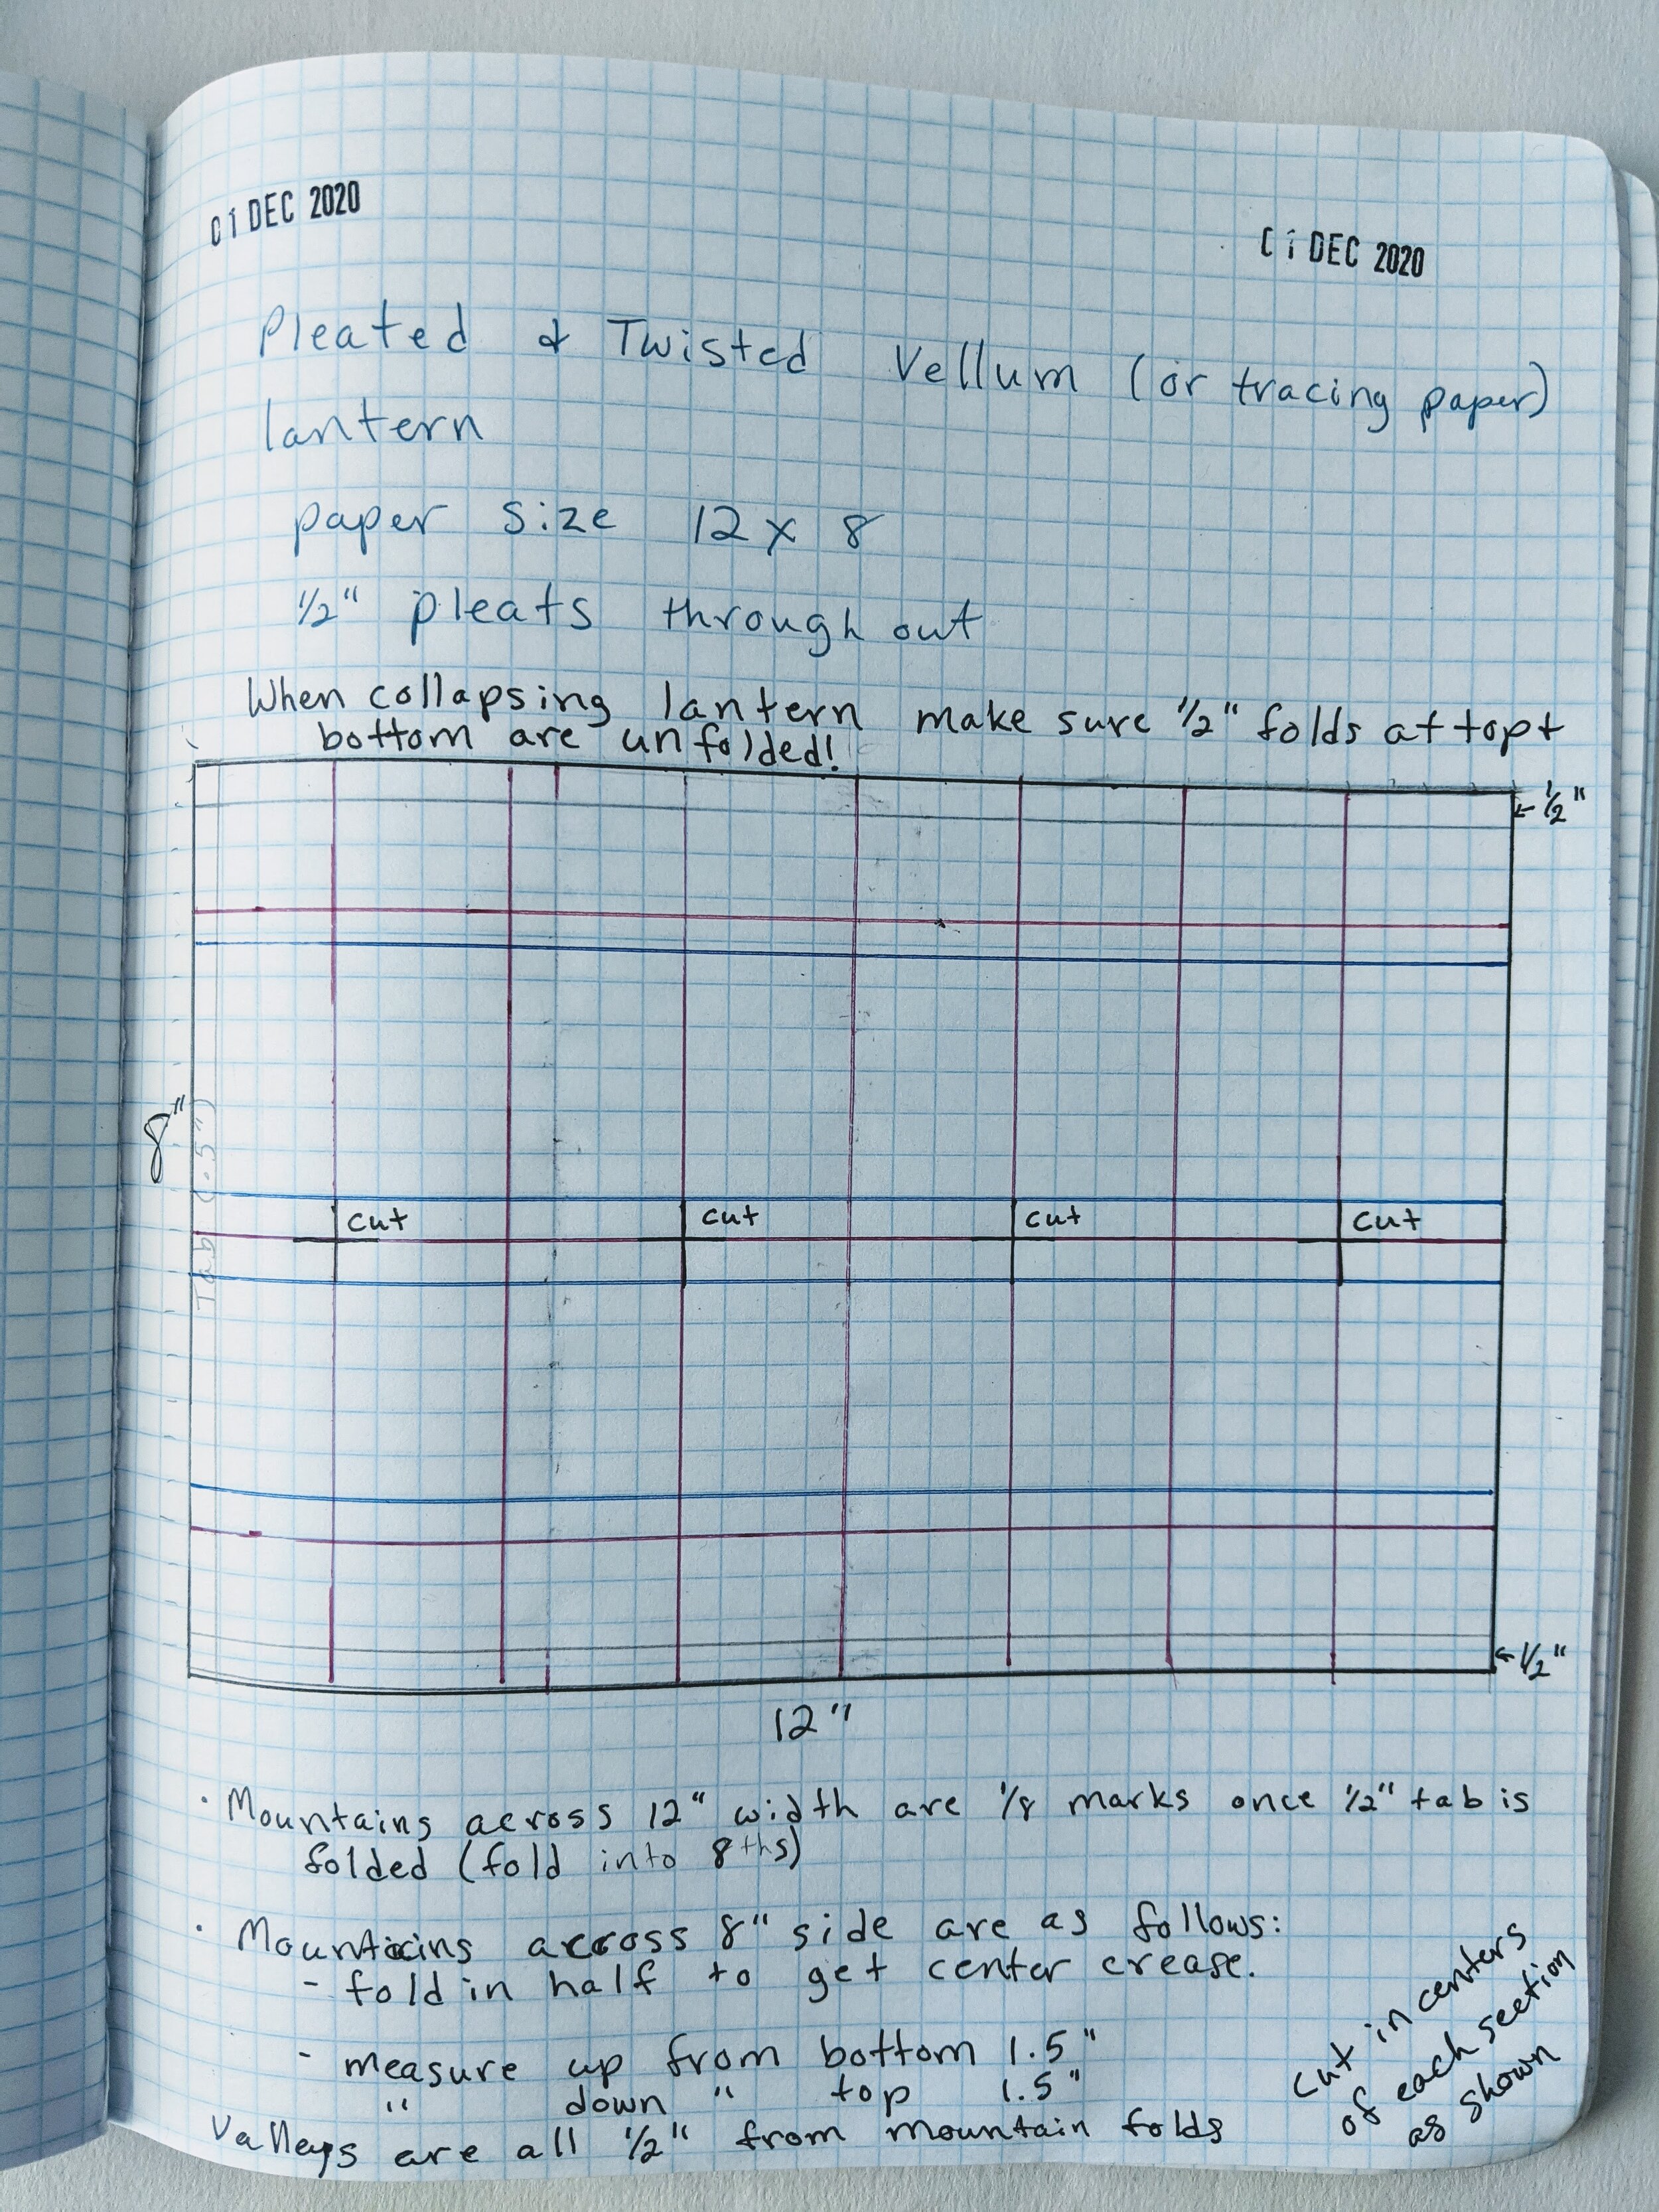 01 DEC 2020
01 DEC 2020
Pleated & Twisted Vellum (or tracing paper)
lantern
paper size 12 x 8
1/2" pleats through out
When collapsing lantern make sure 1/2" folds at top +
bottom are unfolded!
1/2"
8"
Tab (.5")
cut
cut
cut
cut
1/2"
12"
· Mountains across 12" width are 1/8 marks once 1/2" tab is
folded (fold into 8ths)
· Mountains across 8" side are as follows:
- fold in half to get center crease.
- measure up from bottom 1.5"
" down " top 1.5"
Valleys are all 1/2" from mountain folds
cut in centers
of each section
as shown